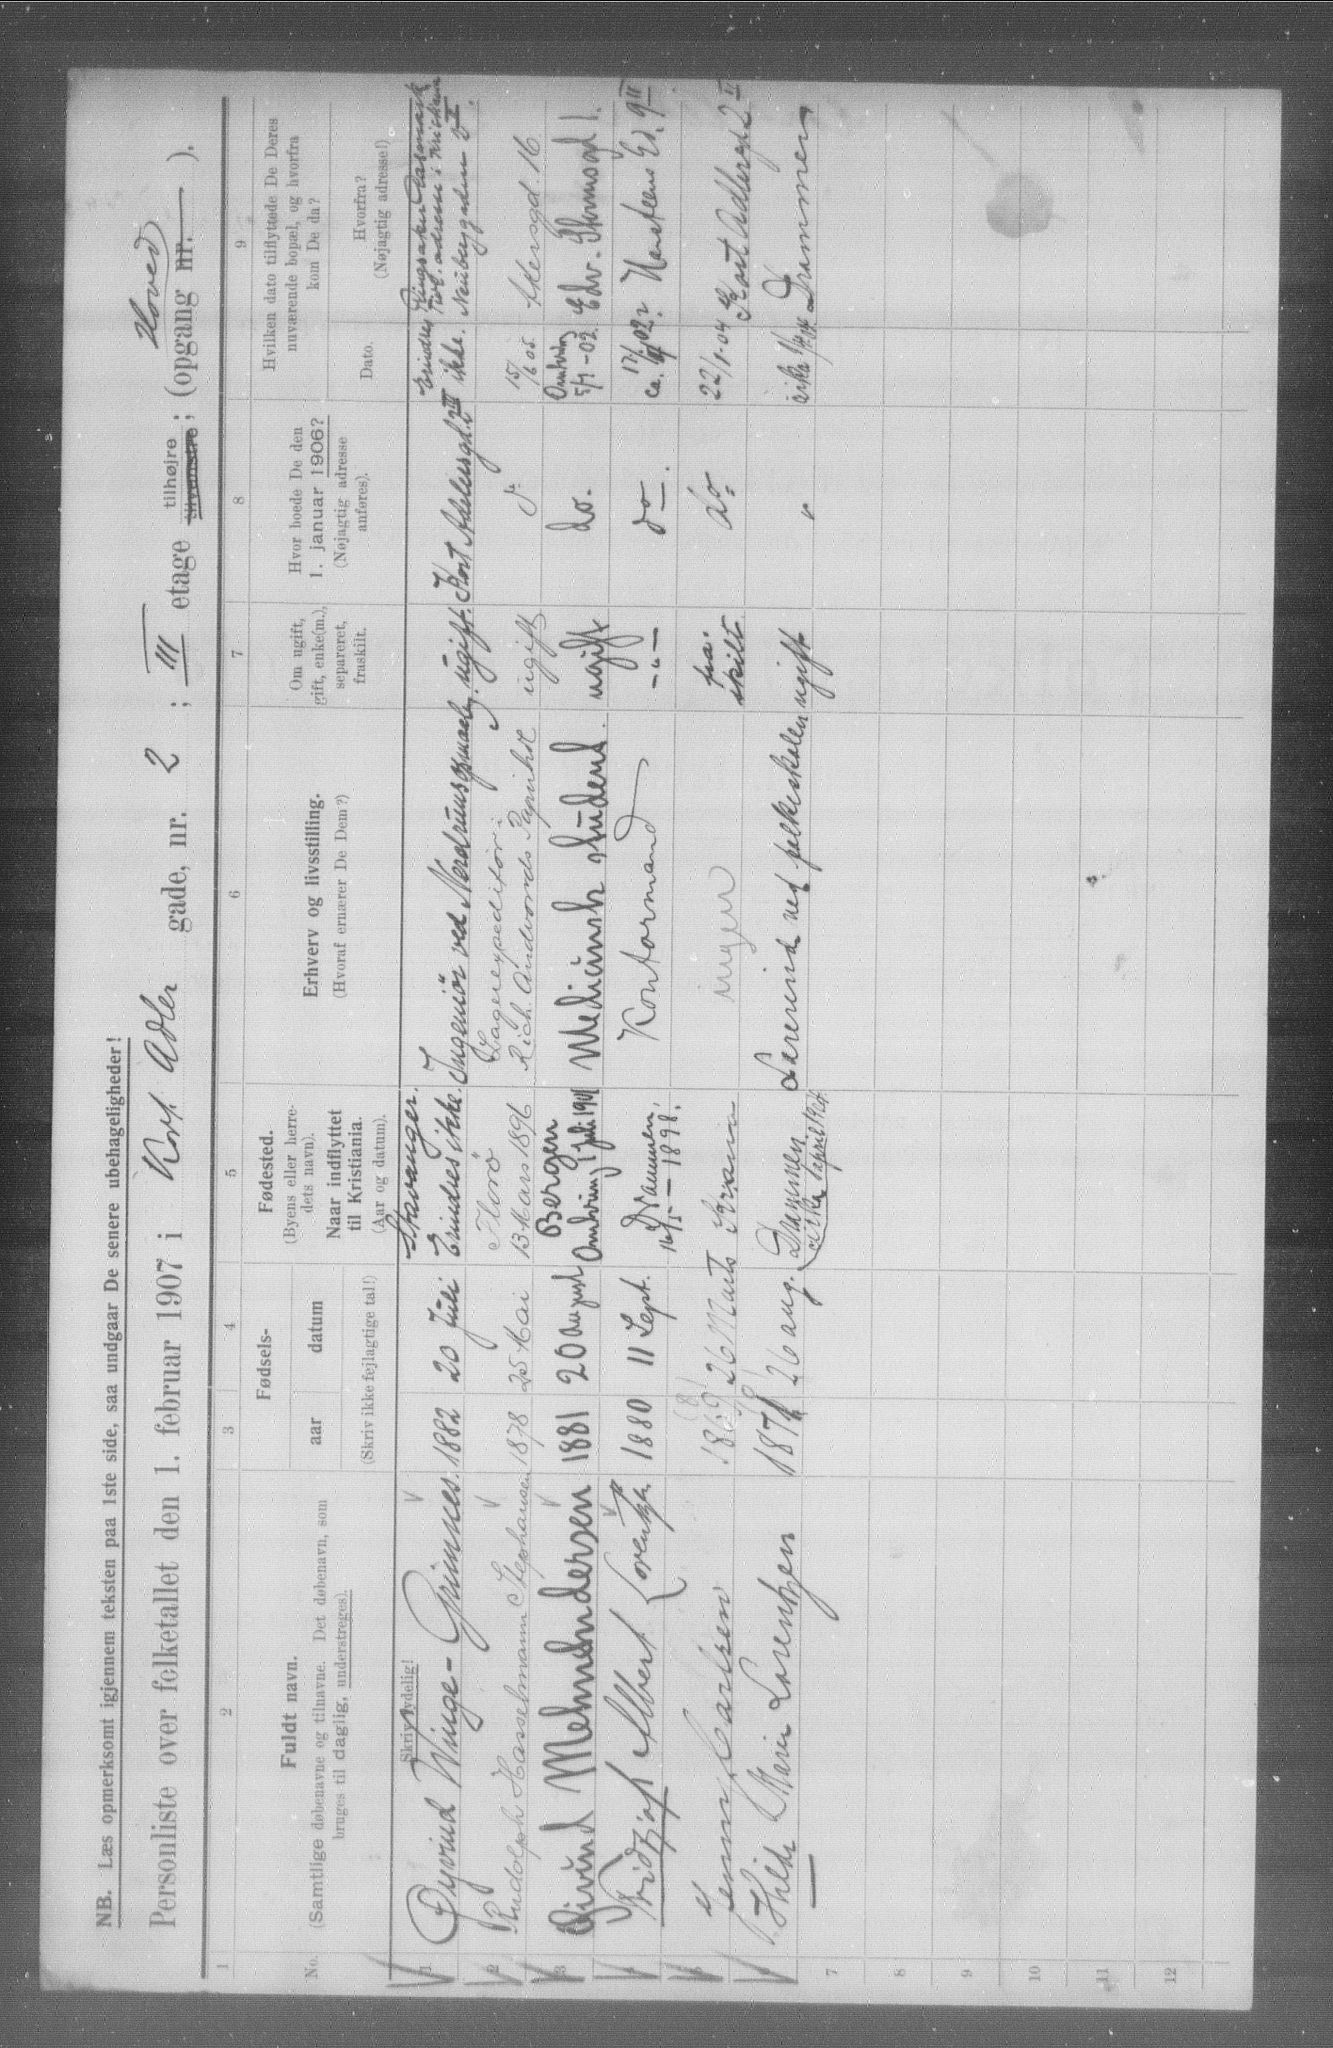 NB. Læs opmerksomt igjennem teksten paa 1ste side, saa undgaar De senere ubehageligheder!
Personliste over folketallet den 1. februar 1907 i Kort Adler gade, nr. 2 ; III etage tilhøjre tilvenstre ; (opgang nr. Hoved ).
1 2 3 4 5 6 7 8 9
No.
Fuldt navn.
(Samtlige døbenavne og tilnavne. Det døbenavn, som
bruges til daglig, understreges).
Skriv tydelig!
Fødsels-
aar datum
(Skriv ikke fejlagtige tal!)
Fødested.
(Byens eller herre-
dets navn).
Naar indflyttet
til Kristiania.
(Aar og datum).
Erhverv og livsstilling.
(Hvoraf ernærer De Dem?)
Om ugift,
gift, enke(m.),
separeret,
fraskilt.
Hvor boede De den
1. januar 1906?
(Nøjagtig adresse
anføres).
Hvilken dato tilflyttede De Deres
nuværende bopæl, og hvorfra
kom De da?
Dato.
Hvorfra?
(Nøjagtig adresse!)
1 Øyvind Winge-Grimnes. 1882 20 Juli Stavanger. Erindres ikke. Ingeniør ved ugift. Kort Adelersgd. 2 III Erindres ikke.
2 Rudolph Hasselmann Stephansen 1878 25 Mai Florø 13 Mars 1896 Lagerexpeditør i Rich. Andvords Papirhdl ugift 15/6 05. Akersgd. 16
3 Eivind Mehn-Andersen 1881 20 august Bergen Omkring 1 juli 1901 Medicinsk student. ugift do. Omkring 5/1-02. Edv. Stormsgd 1.
4 Fridtjof Albert Lorentzen 1880 11 Sept. Drammen, 16/5-1898. Kontormand -"- do. ca. 02. Hansteens Gd. 9 II
5 Jenny Carlsen 26 Marts ingen fra-skilt do. 22/1-04 Kort Adlersgd 2 II
6 Hilda Marie Lorentzen 26 aug. Drammen cirka april Lærerinde ved folkeskolen ugift " cirka Drammen
7
8
9
10
11
12